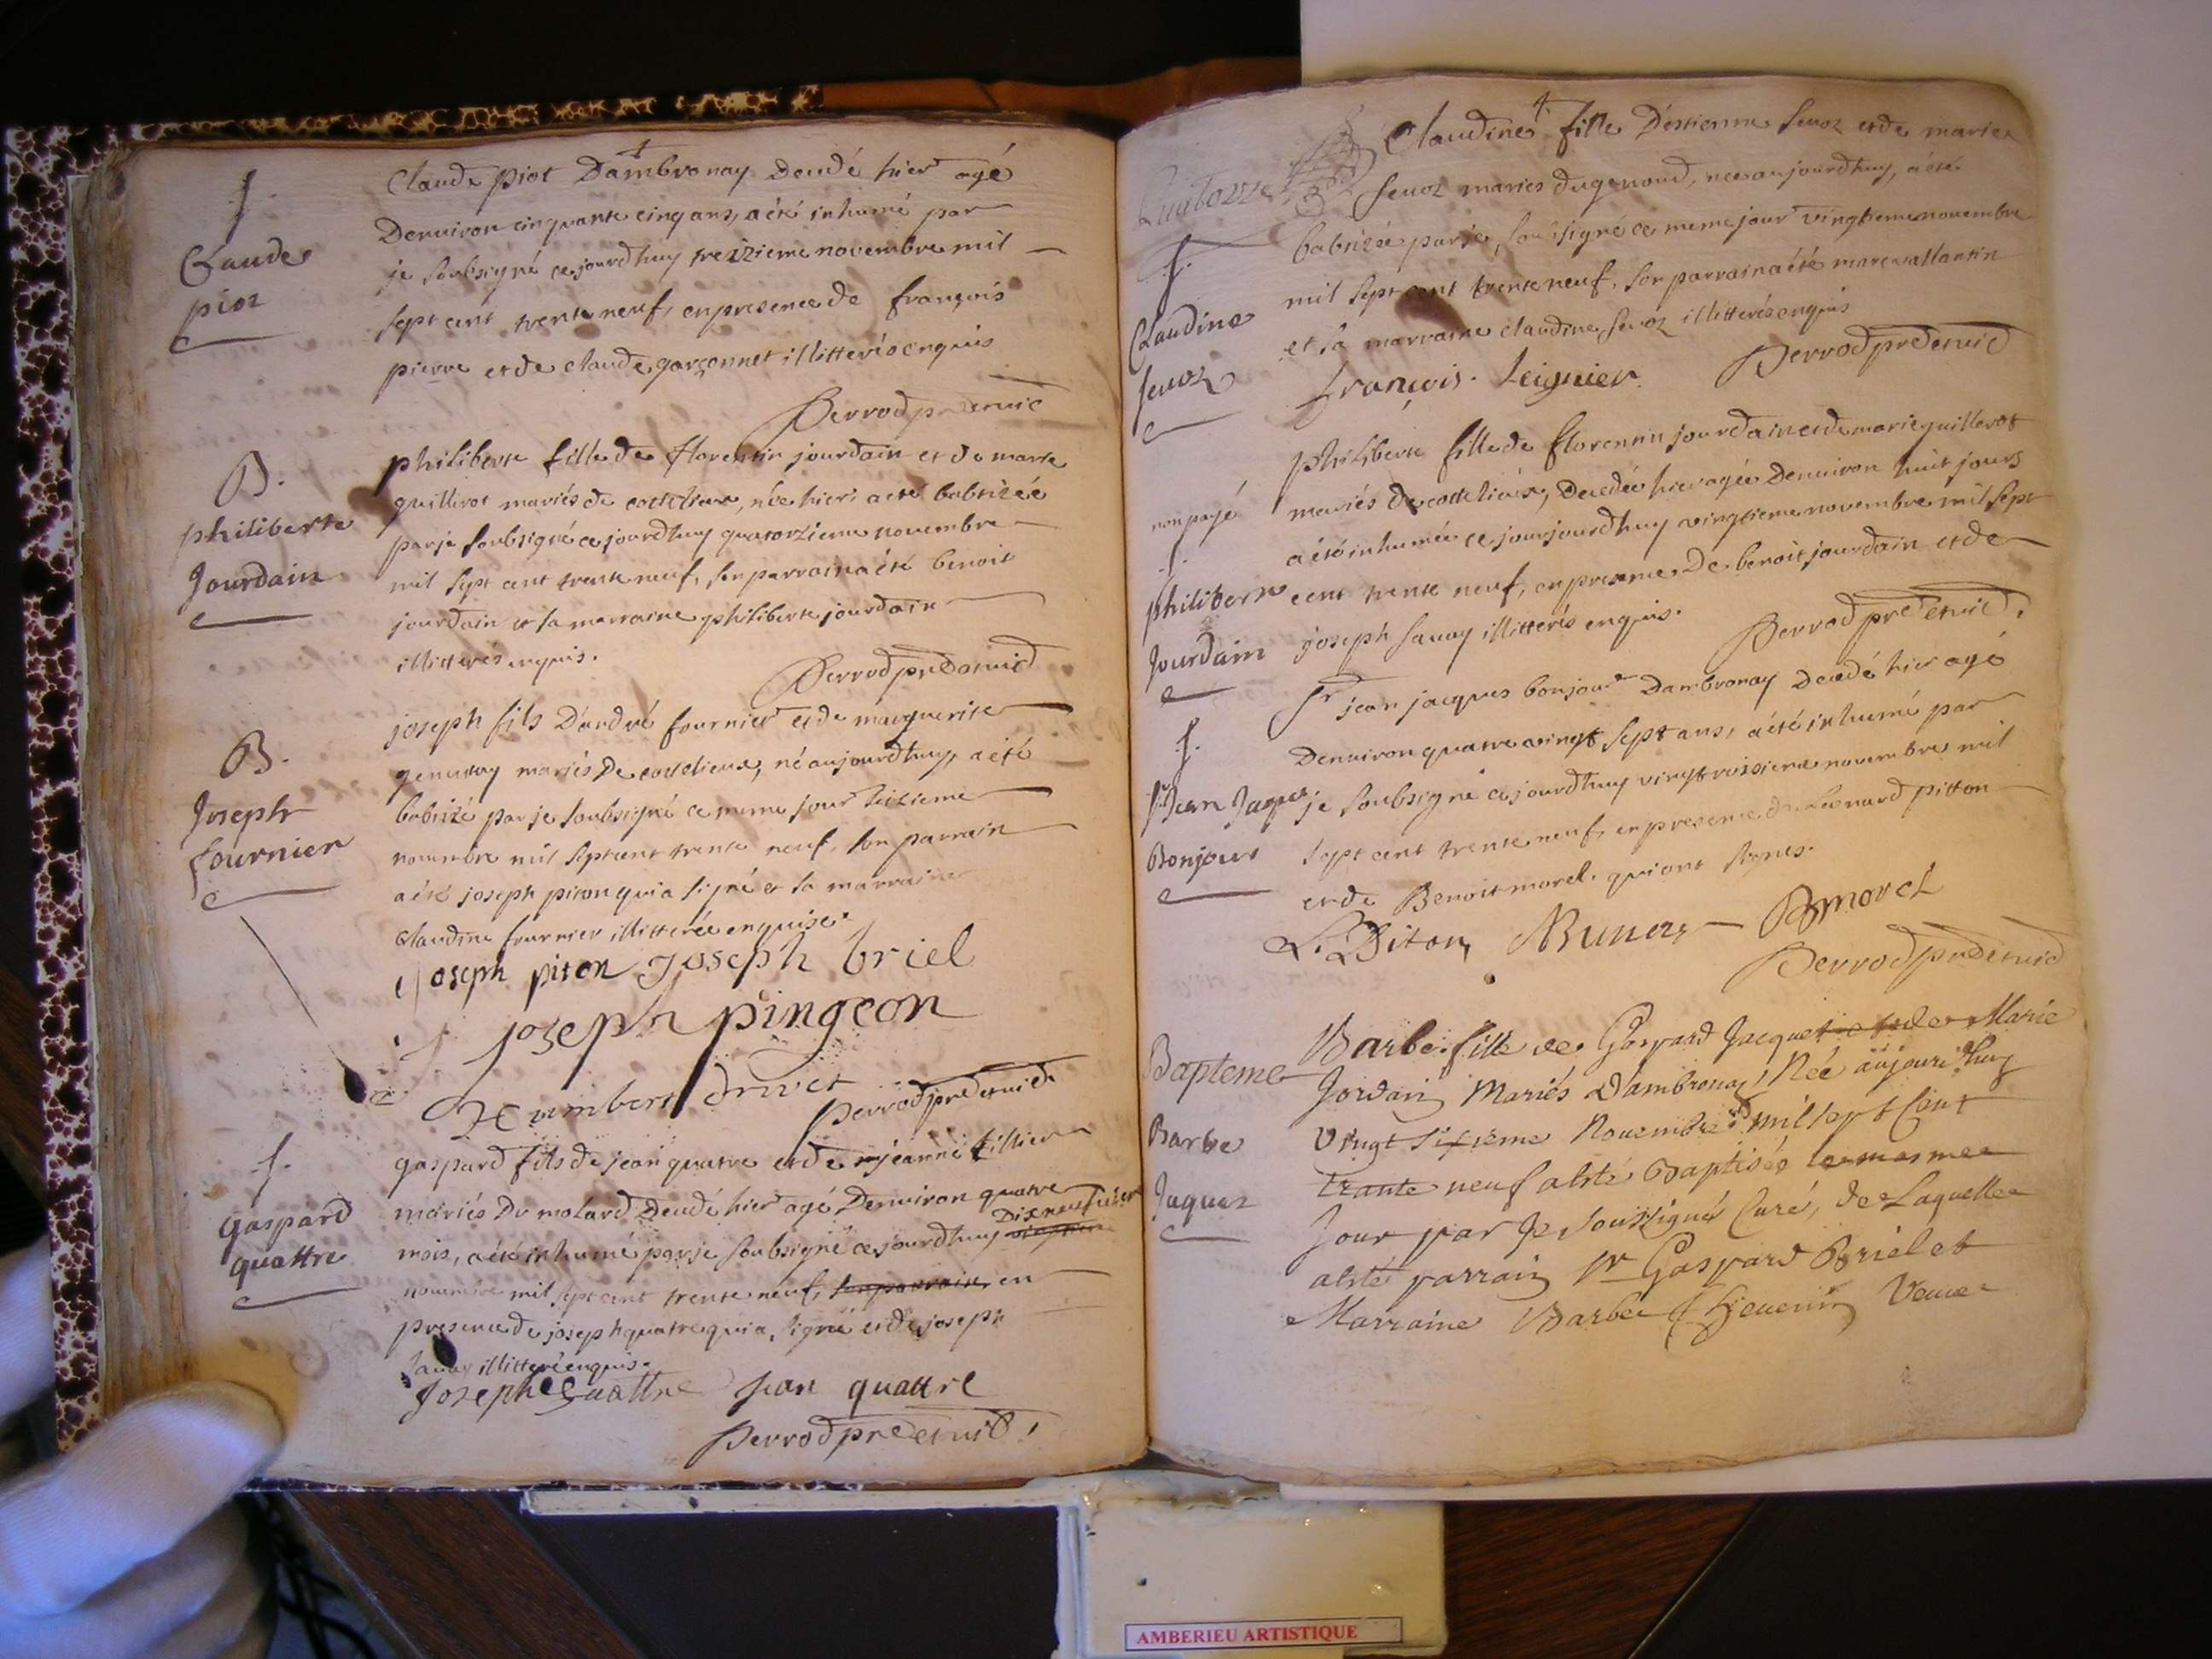 f.
Claude
piot
Claude piot Dambronay Decedé hier agé
Denuiron cinquante cinq ans, a été inhumé par
je soubsigné cejourdhuy treizieme novembre mil
sept cent trente neuf, en presence de françois
pierre et de claude garçonnet illitterés enquis
Perrod
B.
philiberte
Jourdain
philiberte fille de florentin jourdain et de marie
guillerot mariés de coutelieux, née hier, a eté babtizée
par je soubsigné cejourdhuy quatorzieme novembre
mil sept cent trente neuf, son parrain a été benoit
jourdain et sa marraine philiberte jourdain
illitterés enquis.
Perrod
B.
Joseph
fournier
joseph fils D'andré fournier et de marguerite
mariés De coutelieux, né aujourdhuy, a été
babtizé par je soubsigné ce meme jour seizieme
novembre mil sept cent trente neuf, son parrain
a été joseph piton qui a signé et sa marraine
claudine fournier illitterée enquise.
joseph piton Joseph briel
joseph pingeon
Humbert druet
Perrod
f.
gaspard
quattre
gaspard fils de jean quatre et de jeanne tillier
mariés Du molard Decedé hier agé Denuiron quatre
mois, a été inhumé par je soubsigné cejourdhuy Dixneufuieme
novembre mil sept cent trente neuf, son parrain, en
presence de joseph quatre qui a signé et de joseph
sauay illitteré enquis.
Joseph Quattre jean quattre
Perrod
Claudine fille D'estienne seuoz et de marie
seuoz mariés dugenoud, née aujourdhuy, a été
babtizée par je soubsigné ce meme jour vingtieme novembre
mil sept cent trente neuf, son parrain a été marc vallantin
et sa marraine claudine seuoz illitterés enquis
f.
Claudine
seuoz
françois. Leignier. Perrod
non payé
f.
philiberte
Jourdain
philiberte fille de florentin jourdain et de marie guillerot
mariés de coutelieux, Decedée hier agée Denuiron huit jours
a été inhumée ce jourjourdhuy vingtieme novembre mil sept
cent trente neuf, en presence De benoit jourdain et de
joseph sauay illitterés enquis.
Perrod
f.
Sr Jean Jaques
Bonjour
Sr jean jacques bonjour Dambronay Decedé hier agé
Denuiron quatre vingt sept ans, a été inhumé par
je soubsigné cejourdhuy vingtroisieme novembre mil
sept cent trente neuf, en presence de Leonard pitton
et de Benoit morel. qui ont signés.
L. Piton Bmorel
Perrod
Bapteme
Barbe
Jaquet
Barbe fille de Gaspard Jacquet et de Marie
Jordain Mariés d'ambronay Née aujourdhuy
Vingt sixieme Nouembre mil sept Cent
trante neuf a été Baptisée le mesme
Jour par Je soussigné Curé, de Laquelle
a été parrain Sr Gaspard Briel et
Marraine Barbe Theuenin Veuue
AMBERIEU ARTISTIQUE